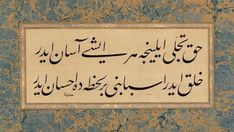 حق تجلی ایلینجه هر ایشی آسان ایدر
خلق ایدر اسبابنی بر لحظه ده احسان ایدر